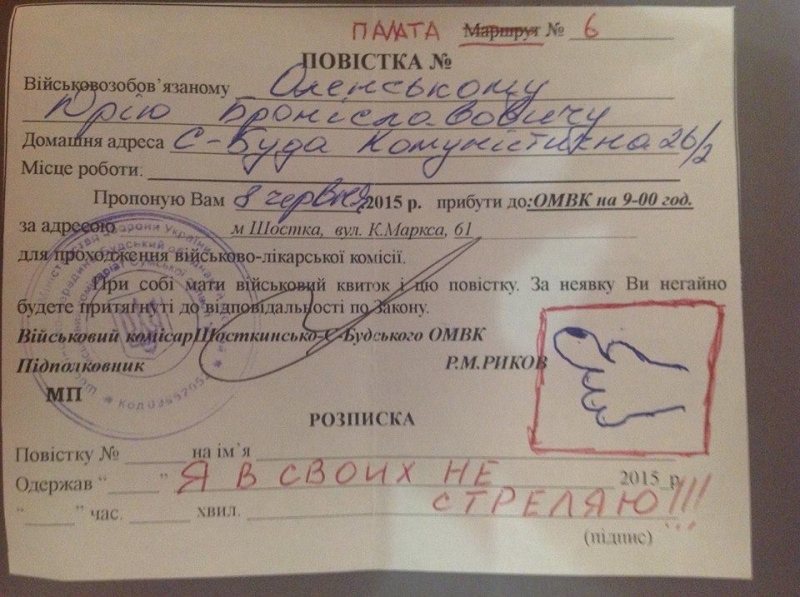 ПАЛАТА Маршрут № 6
ПОВІСТКА №
Військовозобов’язаному Оленському
Юрію Броніславовичу
Домашня адреса С-Буда Комуністична 26/2
Місце роботи:
Пропоную Вам 8 червня 2015 р. прибути до:ОМВК на 9-00 год.
за адресою м Шостка, вул. К.Маркса, 61
для проходження військово-лікарської комісії.
При собі мати військовий квиток і цю повістку. За неявку Ви негайно
будете притягнуті до відповідальності по Закону.
Військовий комісар Шосткинсько-С-Будського ОМВК
Підполковник Р.М.РИКОВ
МП
РОЗПИСКА
Повістку № на ім’я
Одержав “ ” 2015 р.
Я В СВОИХ НЕ
СТРЕЛЯЮ!!!
“ ” час. хвил.
(підпис)